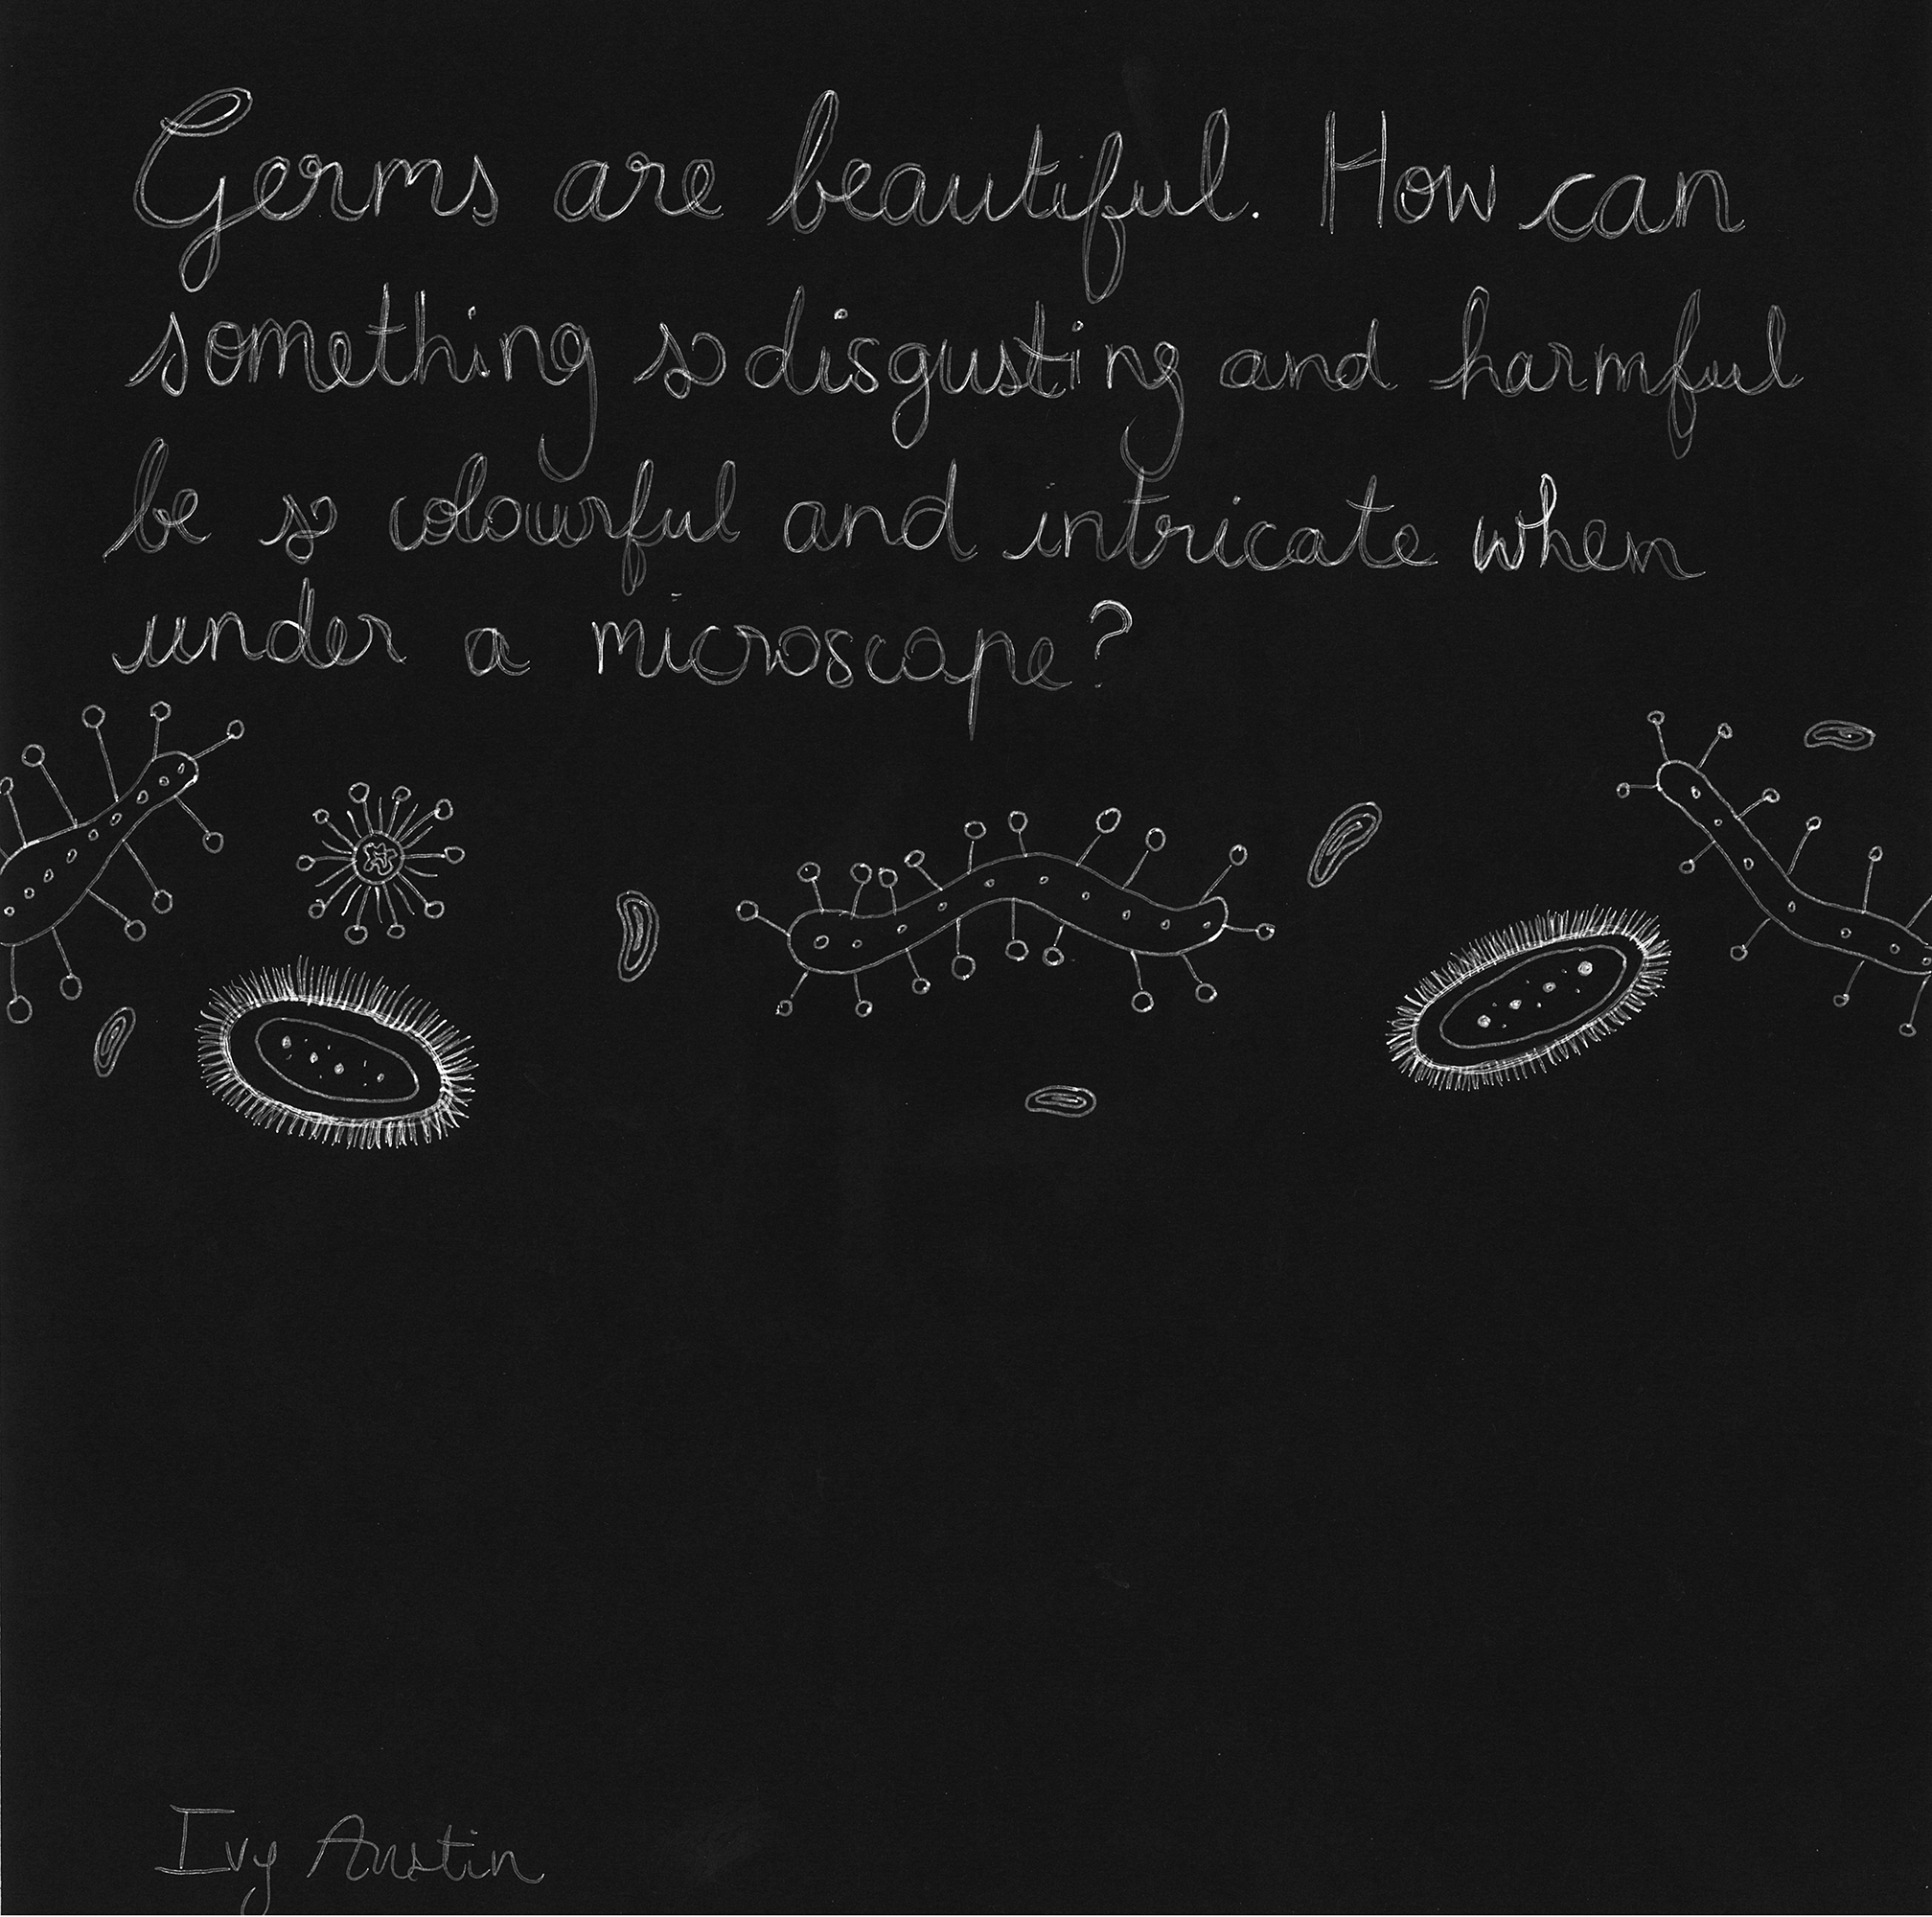 Germs are beautiful. How can
something so disgusting and harmful
be so colourful and intricate when
under a microscope?
Ivy Austin